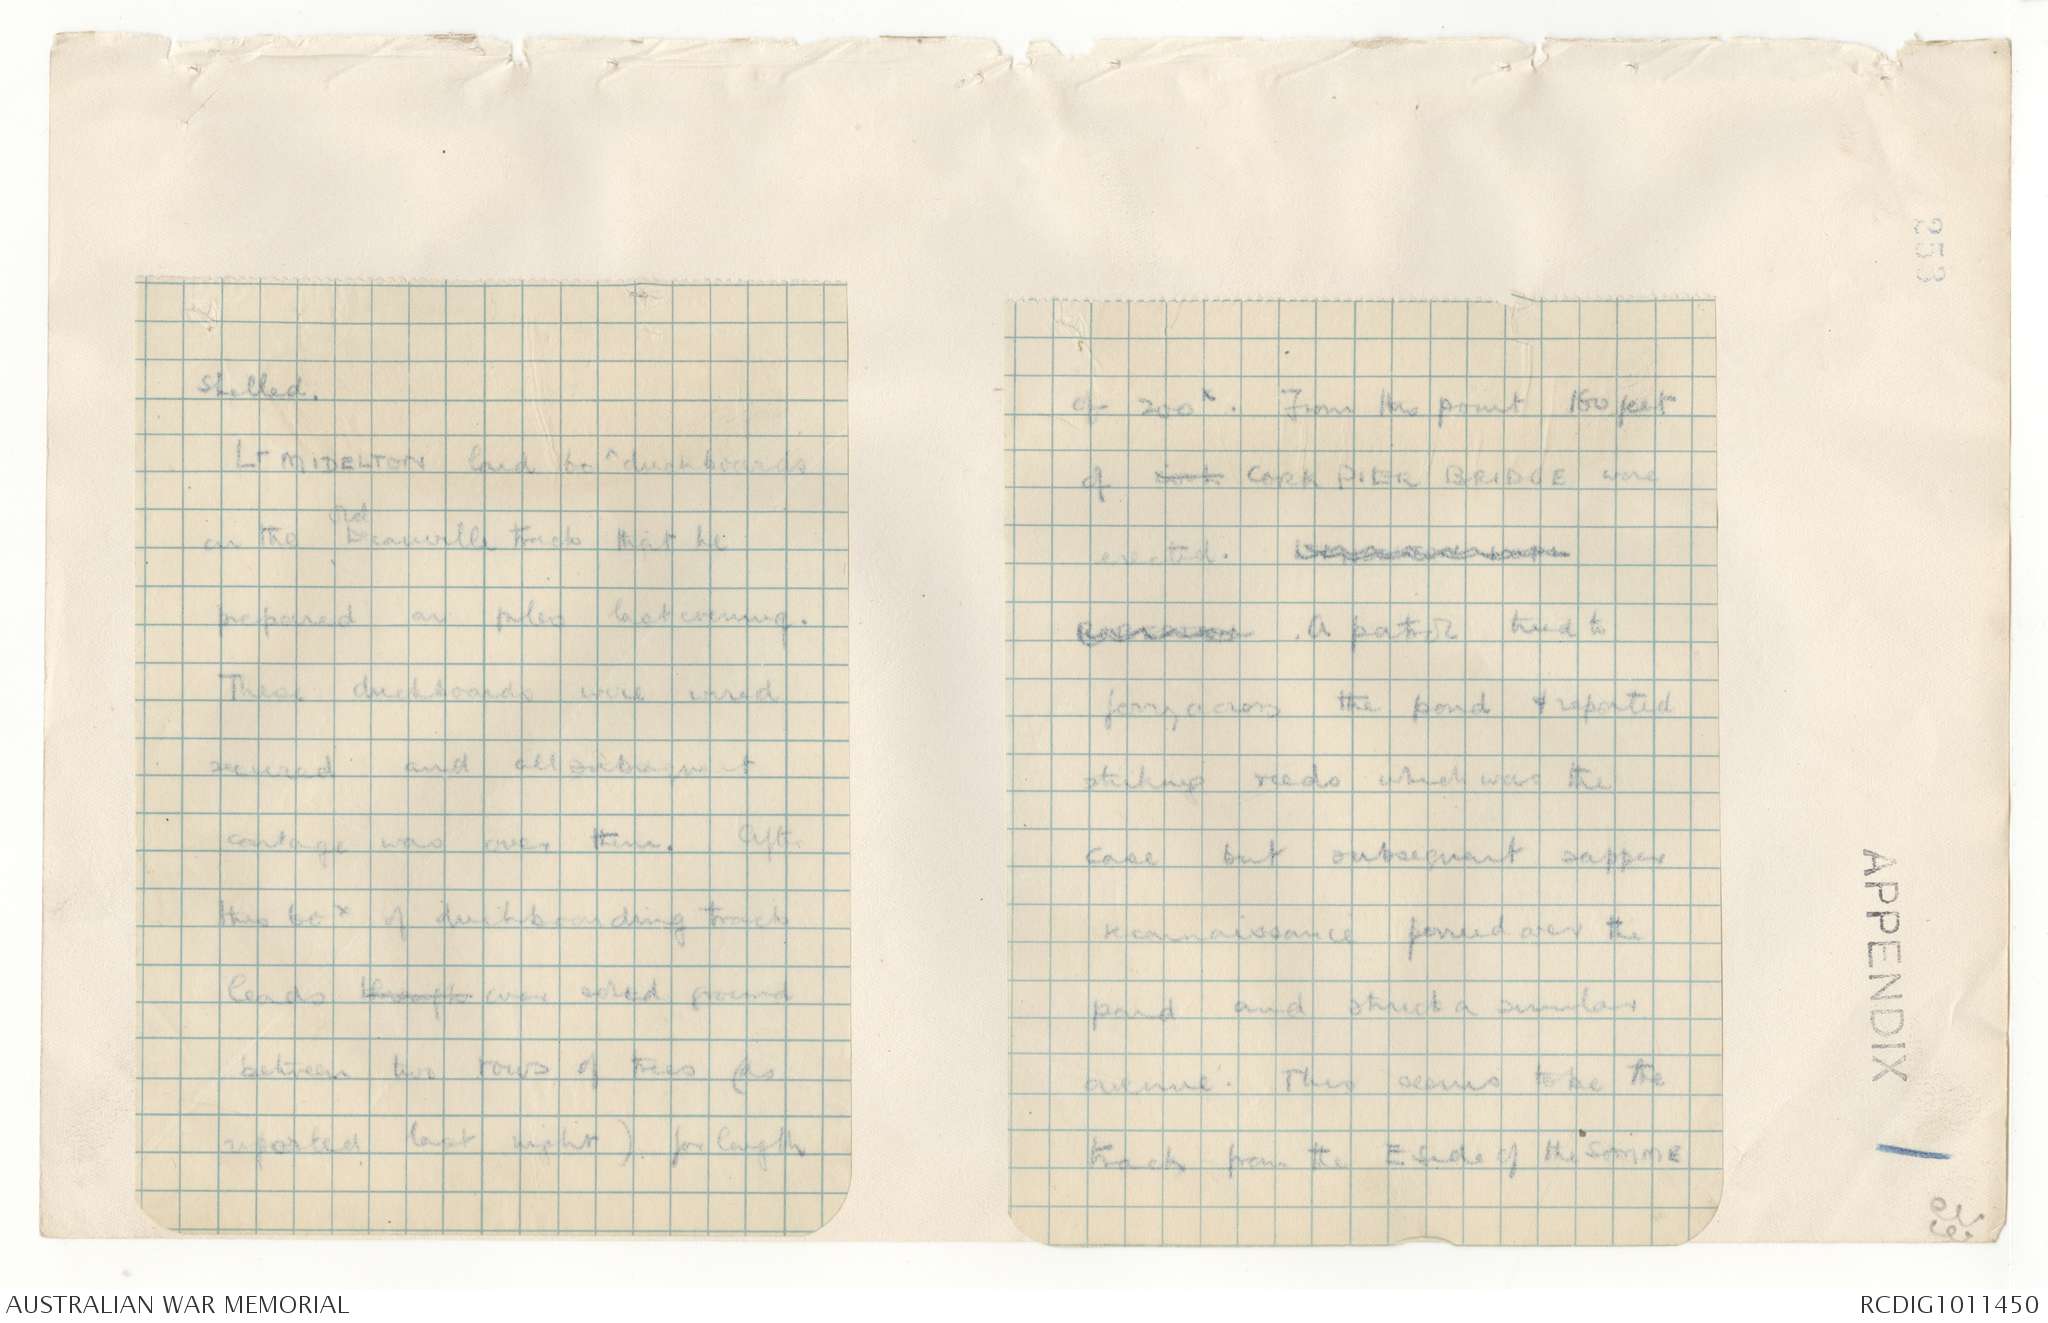 shelled.
Lt MIDELTON laid 60 x duckboards
on the old Bécauville track that he
prepared on piles last evening.
These duckboards were wired
secured and all subsequent
cartage was over them. After
this 60x of duckboarding track
leads through over solid ground
between two rows of trees (as
reported last night) for length
of 200x. From this point 160 feet
of CORK PIER BRIDGE were
erected.
. A patrol tried to
ferry across the pond & reported
striking reeds which was the
case but subsequent sapper
reconnaissance ferried over the
pond and struck a similar
avenue. This seems to be the
track from the E side of the SOMME
253
APPENDIX 1
AUSTRALIAN WAR MEMORIAL
RCDIG1011450